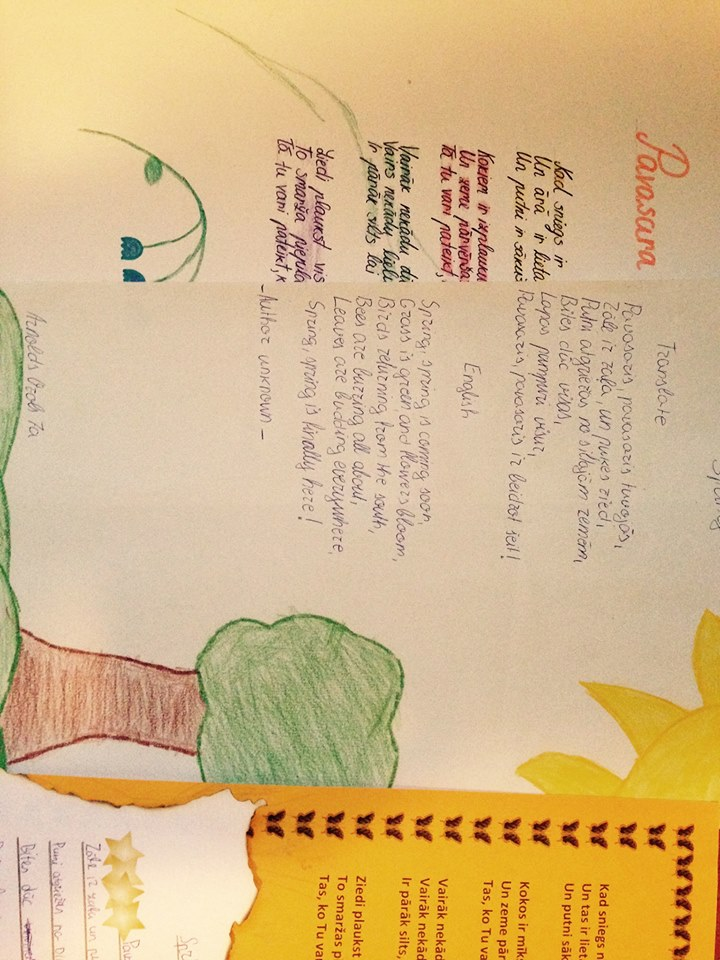 Pavasara
Kad sniegs ir
Un ārā ir lieta
Un putni ir sākuš
Kokiem ir izplauku
Un zemi pārvērša
Tā tu vari pateikt,
Vairāk nekādu
Vairs nekādu
Ir pārāk silts, lai
Ziedi plaukst vis
To smarža
Tā tu vari pateikt, k
Translate
Pavasaris, pavasaris tuvojās,
Zāle ir zaļa un pukes zied,
Putni atgriežas no siltajām zemēm,
Bites dūc visur,
Lapas pumpuri visur,
Pavasaris, pavasaris ir beidzot šeit!
English
Spring, spring is coming soon
Grass is green and flowers bloom,
Birds returning from the south,
Bees are buzzing all about,
Leaves are budding everywhere,
Spring, spring is finally here!
-Author unknown-
Arnolds 7a
Kad sniegs n
Un tas ir liet
Un putni sāk
Kokos ir mīk
Un zeme pār
Tas, ko Tu va
Vairāk nekād
Vairāk nekād
Ir pārāk silts,
Ziedi plaukst
To smaržas p
Tas, ko Tu va
Spr
Pava
Zāle ir un
Bites dūc